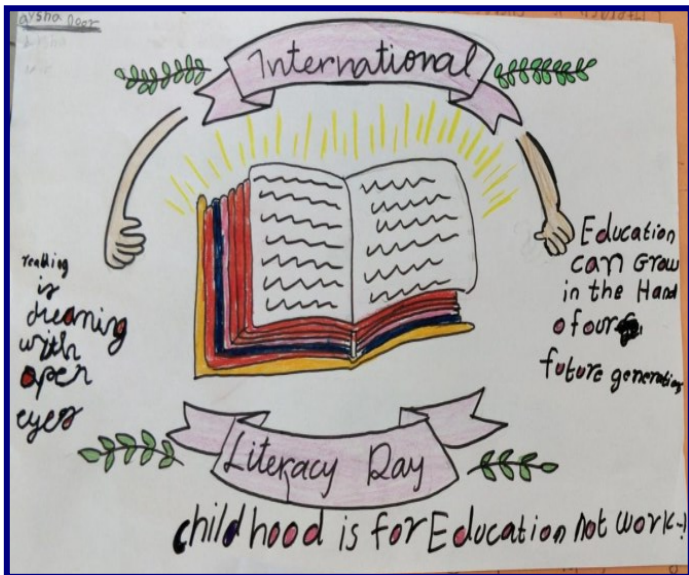 aysha Noor
International
reading
is
dreaming
with
open
eyes
Education
can Grow
in the Hand
of our
future generation
Literacy Day
childhood is for Education not work-!